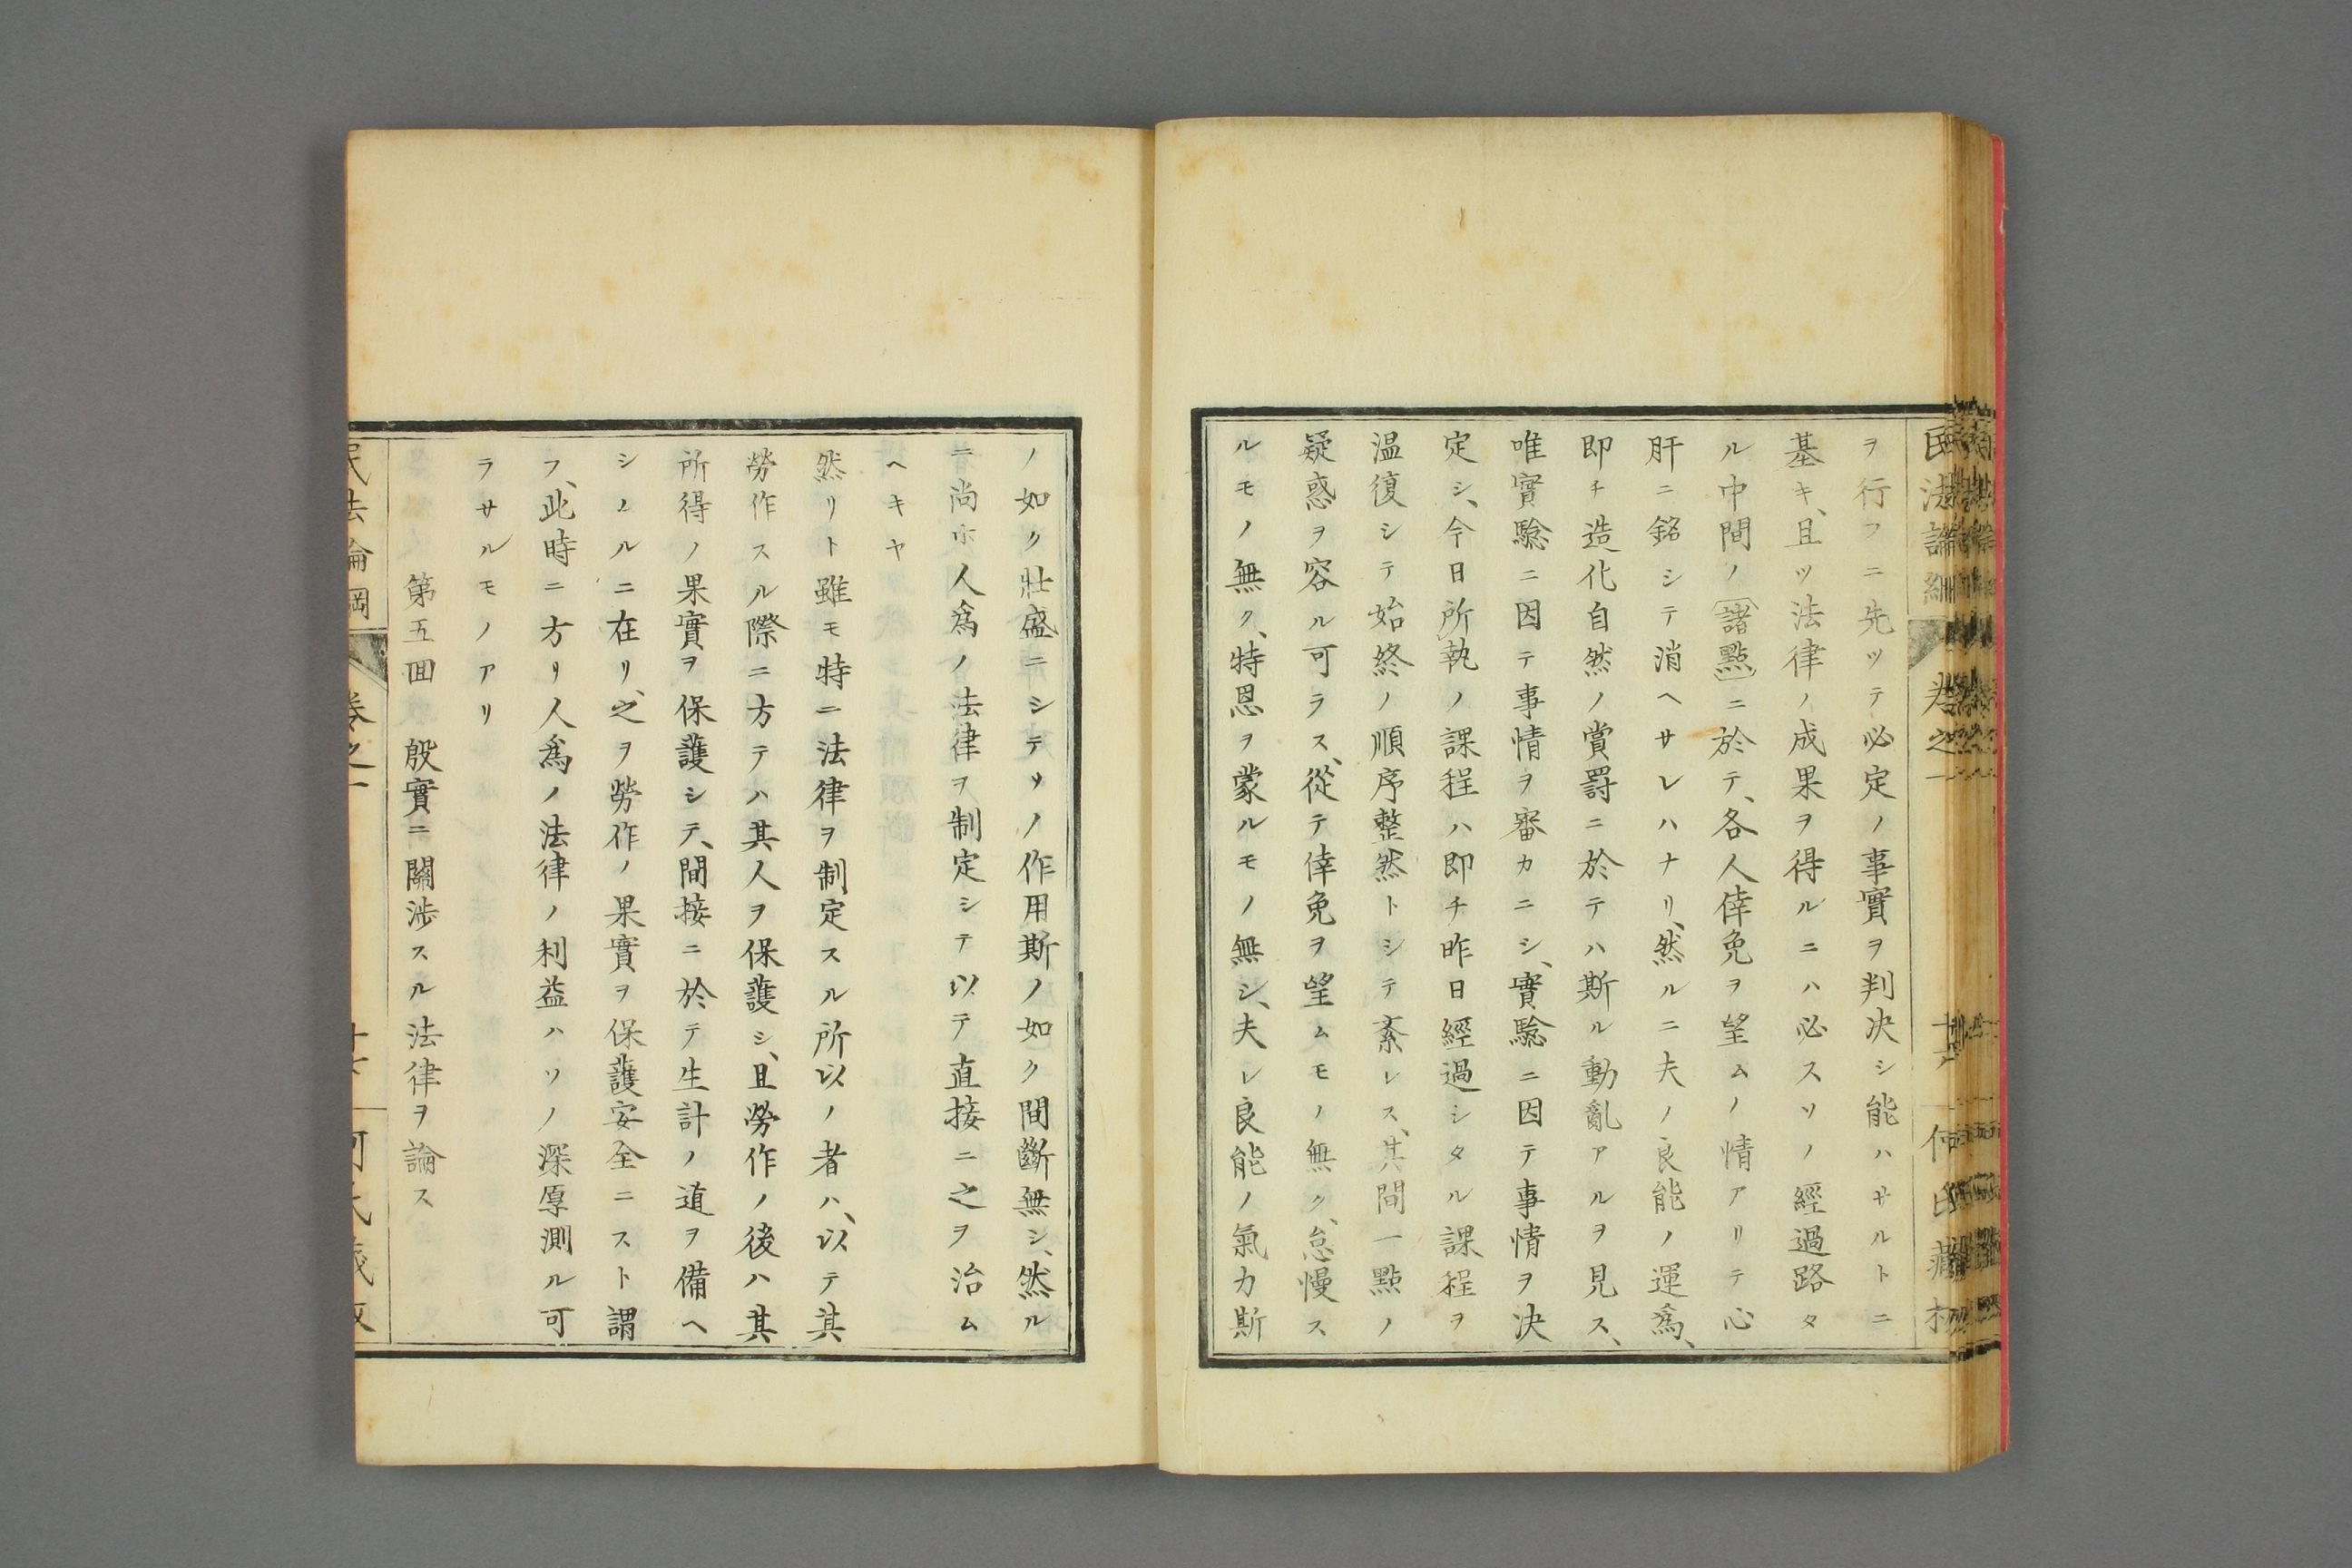 民法論綱
卷之一
何氏藏板
ヲ行フニ先ツテ必定ノ事實ヲ判决シ能ハサルトニ
基キ、且ツ法律ノ成果ヲ得ルニハ必スソノ經過路タ
ル中間ノ(諸點)ニ於テ、各人倖免ヲ望ムノ情アリテ心
肝ニ銘シテ消ヘサレハナリ、然ルニ夫ノ良能ノ運爲、
即チ造化自然ノ賞罰ニ於テハ斯ル動亂アルヲ見ス、
唯實驗ニ因テ事情ヲ審カニシ、實驗ニ因テ事情ヲ决
定シ、今日所執ノ課程ハ即チ昨日經過シタル課程ヲ
温復シテ始終ノ順序整然トシテ紊レス、其間一點ノ
疑惑ヲ容ル可ラス、從テ倖免ヲ望ムモノ無ク、怠慢ス
ルモノ無ク、特恩ヲ蒙ルモノ無シ、夫レ良能ノ氣力斯
ノ如ク壯盛ニシテソノ作用斯ノ如ク間斷無シ、然ル
ニ尚ホ人爲ノ法律ヲ制定シテ以テ直接ニ之ヲ治ム
ヘキヤ
然リト雖モ特ニ法律ヲ制定スル所以ノ者ハ、以テ其
勞作スル際ニ方テハ其人ヲ保護シ、且勞作ノ後ハ其
所得ノ果實ヲ保護シテ、間接ニ於テ生計ノ道ヲ備ヘ
シムルニ在リ、之ヲ勞作ノ果實ヲ保護安全ニスト謂
フ、此時ニ方リ人爲ノ法律ノ利益ハソノ深厚測ル可
ラサルモノアリ
第五回 殷實ニ關渉スル法律ヲ論ス
民法論綱
卷之一
何氏藏板